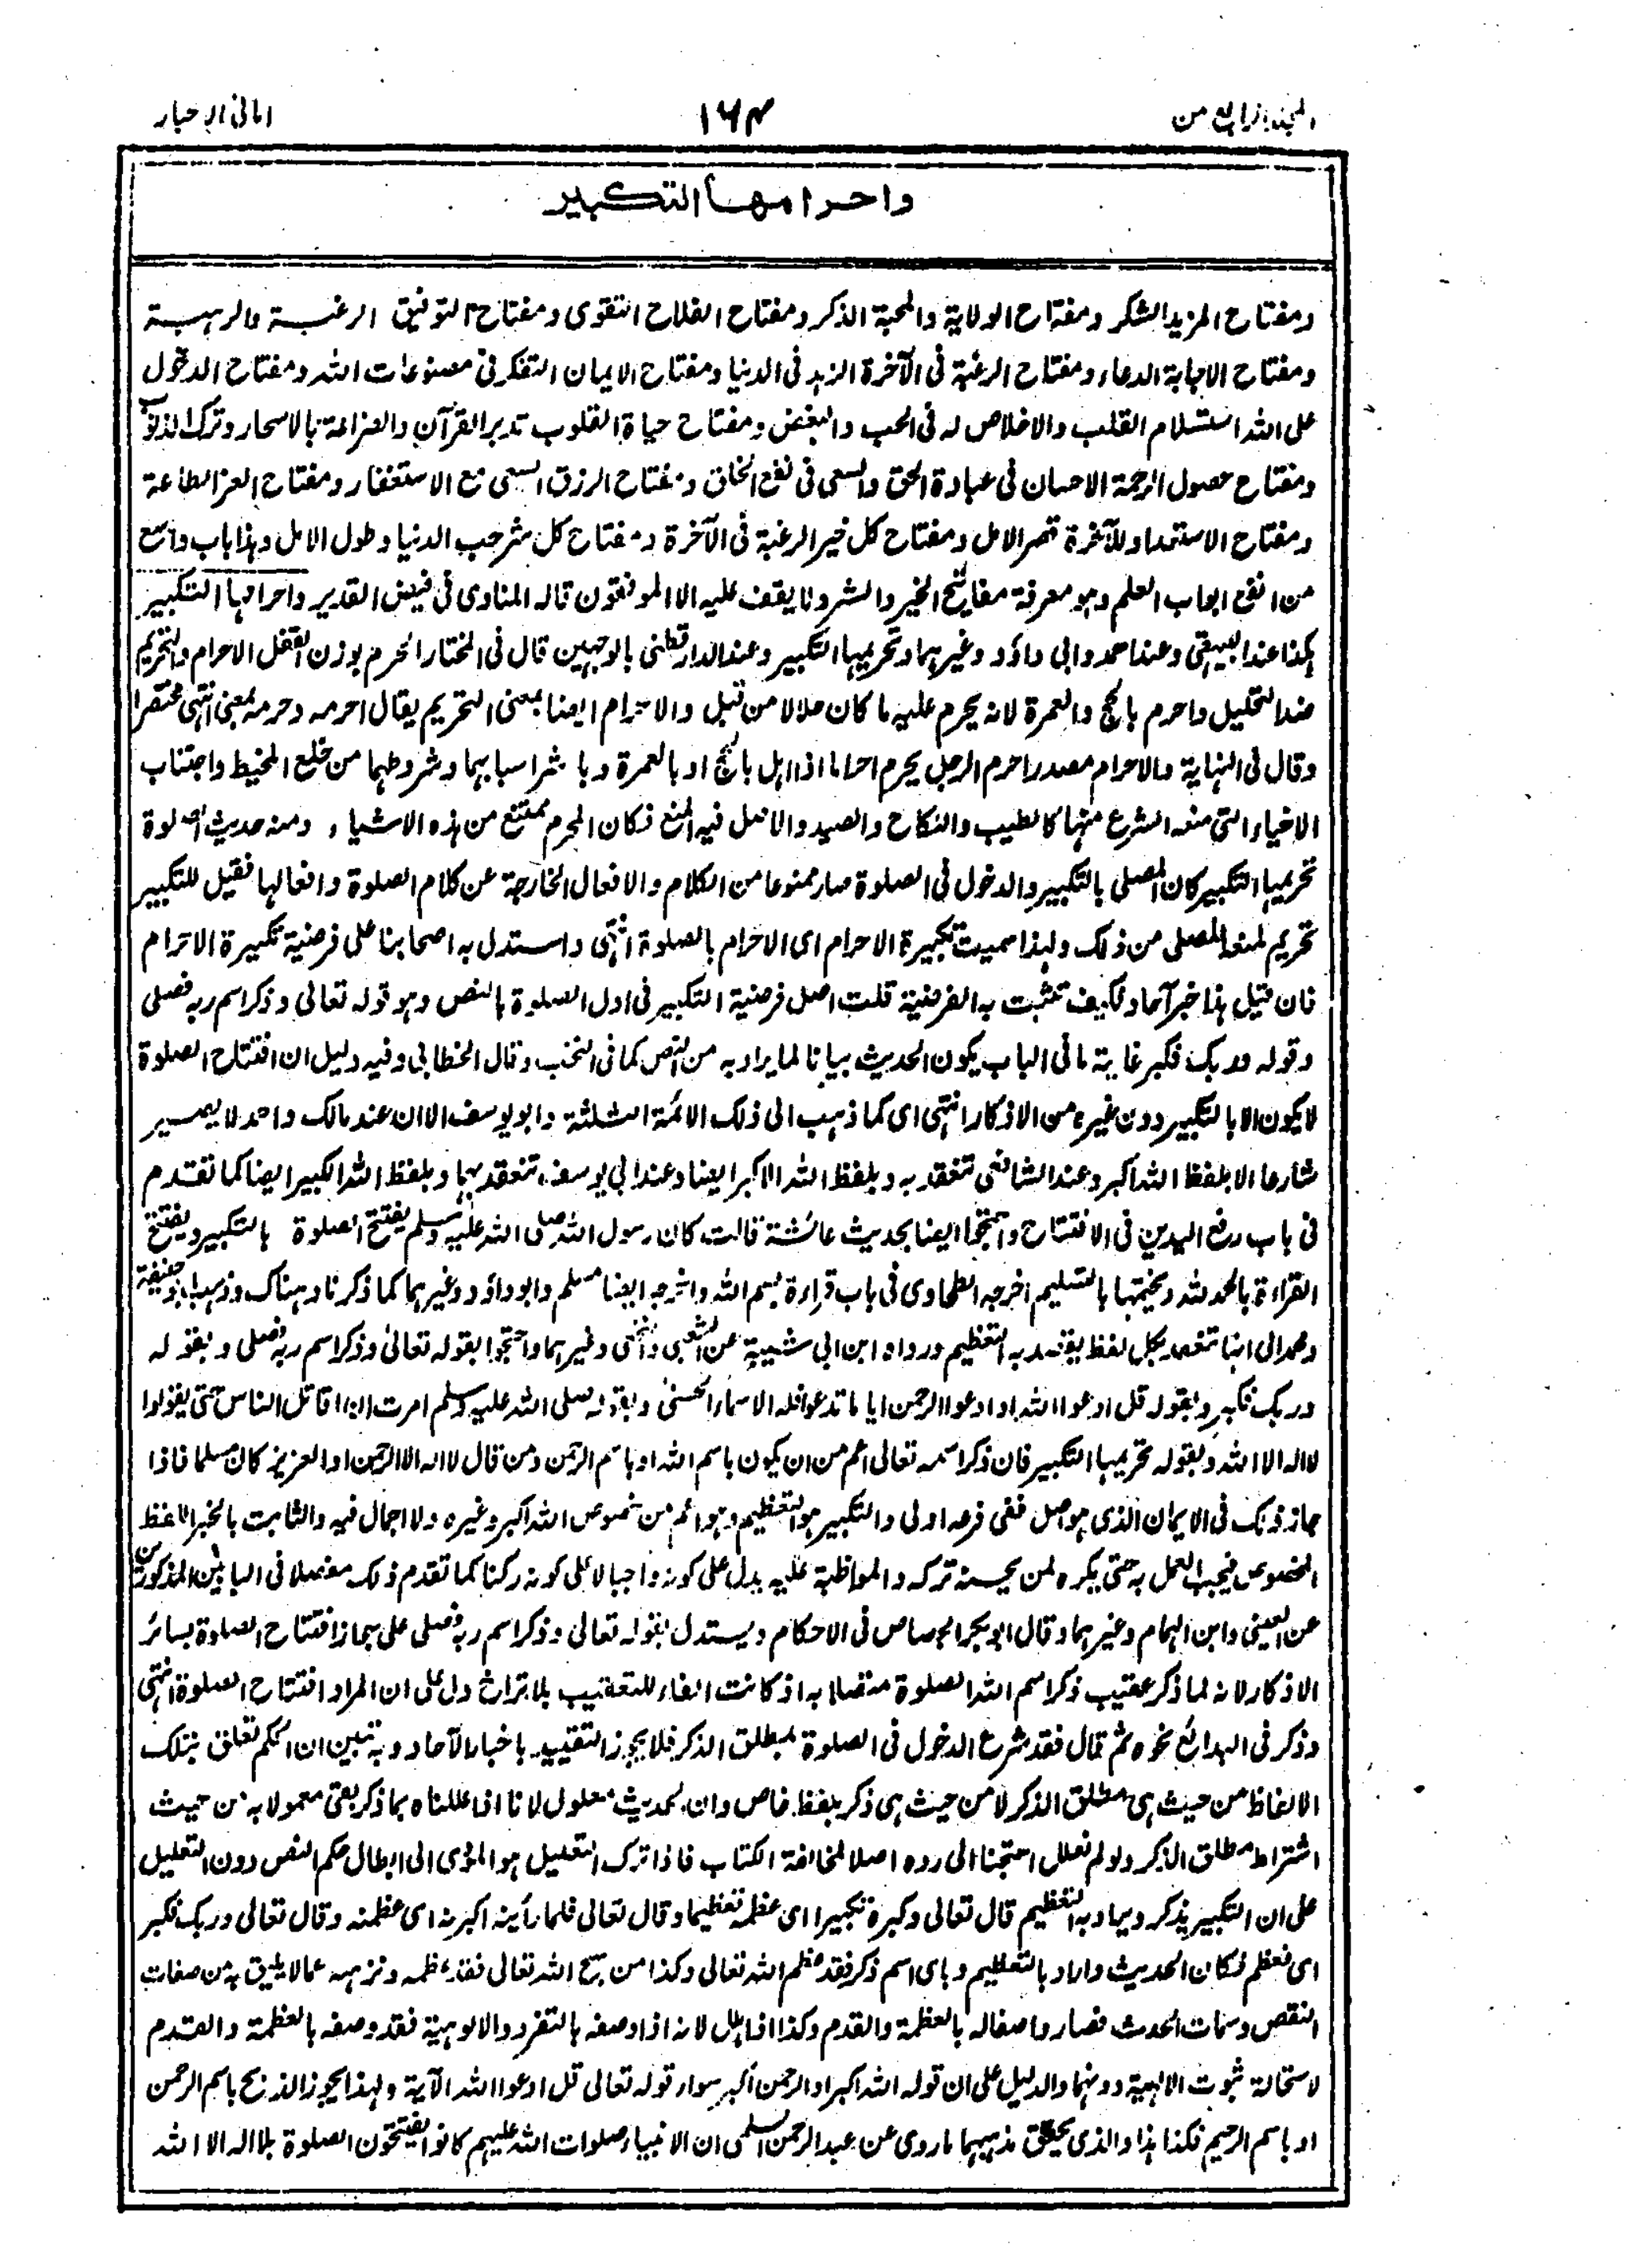 المجلد الرابع من
۱۶۴
امانی الاحبار
واحرامها التكبير
ومفتاح المزيد الشكر ومفتاح الولاية والمحبة الذكر ومفتاح الفلاح التقوى ومفتاح التوفيق الرغبة والرهبة
ومفتاح الاجابة الدعاء ومفتاح الرغبة فى الآخرة الزهد فى الدنيا ومفتاح الايمان التفكر فى مصنوعات الله ومفتاح الدخول
على الله استسلام القلب والاخلاص له فى الحب والبغض ومفتاح حياة القلوب تدبر القرآن والضراعة بالاسحار وترك الذنوب
ومفتاح حصول الرحمة الاحسان فى عبادة الحق والسعى فى نفع الخلق ومفتاح الرزق السعى مع الاستغفار ومفتاح العز الطاعة
ومفتاح الاستعداد للآخرة قصر الامل ومفتاح كل خير الرغبة فى الآخرة ومفتاح كل شر حب الدنيا وطول الامل وهذا باب واسع
من انفع ابواب العلم وهو معرفة مفاتيح الخير والشر ولا يقف عليه الا الموفقون قاله المناوى فى فيض القدير واحرامها التكبير
هكذا عند البيهقى وعند احمد وابى داؤد وغيرهما وتحريمها التكبير وعند الدارقطنى بالوجهين قال فى المختار الحرم بوزن القفل الاحرام والتحريم
ضد التحليل واحرم بالحج والعمرة لانه يحرم عليه ما كان حلالا من قبل والاحرام ايضا بمعنى التحريم يقال احرمه وحرمه بمعنى انتهى مختصرا
وقال فى النهاية والاحرام مصدر احرم الرجل يحرم احراما اذا اهل بالحج او بالعمرة وباشر اسبابهما وشروطهما من خلع المخيط واجتناب
الاشياء التى منعه الشرع منها كالطيب والنكاح والصيد والاصل فيه المنع فكان المحرم ممتنع من هذه الاشياء ومنه حديث الصلوة
تحريمها التكبير كان المصلى بالتكبير والدخول فى الصلوة صار ممنوعا من الكلام والافعال الخارجة عن كلام الصلوة وافعالها فقيل للتكبير
تحريم لمنعه المصلى من ذلك ولهذا سميت تكبيرة الاحرام اى الاحرام بالصلوة انتهى واستدل به اصحابنا على فرضية تكبيرة الاحرام
فان قيل هذا خبر آحاد فكيف تثبت به الفرضية قلت اصل فرضية التكبير فى اول الصلوة بالنص وهو قوله تعالى وذكر اسم ربه فصلى
وقوله وربك فكبر غاية ما فى الباب يكون الحديث بيانا لما يراد به من النص كما فى النخب وقال الخطابى وفيه دليل ان افتتاح الصلوة
لا يكون الا بالتكبير دون غيره من الاذكار انتهى اى كما ذهب الى ذلك الائمة الثلثة وابو يوسف الا ان عند مالك واحمد لا يصير
شارعا الا بلفظ الله اكبر وعند الشافعى تنعقد به وبلفظ الله الاكبر ايضا وعند ابى يوسف تنعقد بهما وبلفظ الله الكبير ايضا كما تقدم
فى باب رفع اليدين فى الافتتاح واحتجوا ايضا بحديث عائشة قالت كان رسول الله صلى الله عليه وسلم يفتتح الصلوة بالتكبير ويفتتح
القراءة بالحمد لله ويختمها بالتسليم اخرجه الطحاوى فى باب قراءة بسم الله واخرجه ايضا مسلم وابو داؤد وغيرهما كما ذكرناه هناك وذهب ابو حنيفة
ومحمد الى انها تنعقد بكل لفظ يقصد به التعظيم ورواه ابن ابى شيبة عن الشعبى والنخعى وغيرهما واحتجوا بقوله تعالىٰ وذكر اسم ربه فصلى وبقوله
وربك فكبر وبقوله قل ادعوا الله او ادعوا الرحمن ايا ما تدعوا فله الاسماء الحسنى وبقوله صلى الله عليه وسلم امرت ان اقاتل الناس حتى يقولوا
لا اله الا الله وبقوله تحريمها التكبير فان ذكر اسمه تعالى اعم من ان يكون باسم الله او باسم الرحمن ومن قال لا اله الا الرحمن او العزيز كان مسلما فاذا
جاز ذلك فى الايمان الذى هو اصل ففى فرعه اولى والتكبير هو التعظيم وهو اعم من خصوص الله اكبر وغيره ولا اجمال فيه والثابت بالخبر اللفظ
المخصوص فيجب العمل به حتى يكره لمن يحسنه تركه والمواظبة عليه يدل على كونه واجبا لا على كونه ركنا كما تقدم ذلك مفصلا فى البابين المذكورين
عن العينى وابن الهمام وغيرهما وقال ابو بكر الجصاص فى الاحكام ويستدل بقوله تعالى وذكر اسم ربه فصلى على جواز افتتاح الصلوة بسائر
الاذكار لانه لما ذكر عقيب ذكر اسم الله الصلوة متصلا به اذ كانت الفاء للتعقيب بلا تراخ دل على ان المراد افتتاح الصلوة انتهى
وذكر فى البدائع نحوه ثم قال فقد شرع الدخول فى الصلوة بمطلق الذكر فلا يجوز التقييد باخبار الآحاد وبه تبين ان الحكم تعلق بتلك
الالفاظ من حيث هى مطلق الذكر لا من حيث هى ذكر بلفظ خاص وان الحديث معلول لانا اذا عللناه بما ذكر بقى معمولا به من حيث
اشتراط مطلق الذكر ولو لم نعلل احتجنا الى رده اصلا لمخالفة الكتاب فاذا ترك التعليل هو المؤدى الى ابطال حكم النص دون التعليل
على ان التكبير يذكر ويراد به التعظيم قال تعالى وكبره تكبيرا اى عظمه تعظيما وقال تعالى فلما رأينه اكبرنه اى عظمنه وقال تعالى وربك فكبر
اى فعظم فكان الحديث وارادا بالتعظيم وباى اسم ذكر فقد عظم الله تعالى وكذا من سبح الله تعالى فقد عظمه ونزهه عما لا يليق به من صفات
النقص وسمات الحدث فصار واصفا له بالعظمة والقدم وكذا اذا هلل لانه اذا وصفه بالتفرد والالوهية فقد وصفه بالعظمة والقدم
لاستحالة ثبوت الالهية دونهما والدليل على ان قوله الله اكبر او الرحمن اكبر سواء قوله تعالى قل ادعوا الله الآية ولهذا يجوز الذبح باسم الرحمن
او باسم الرحيم فكذا هذا والذى يحقق مذهبهما ما روى عن عبد الرحمن السلمى ان الانبياء صلوات الله عليهم كانوا يفتتحون الصلوة بلا اله الا الله